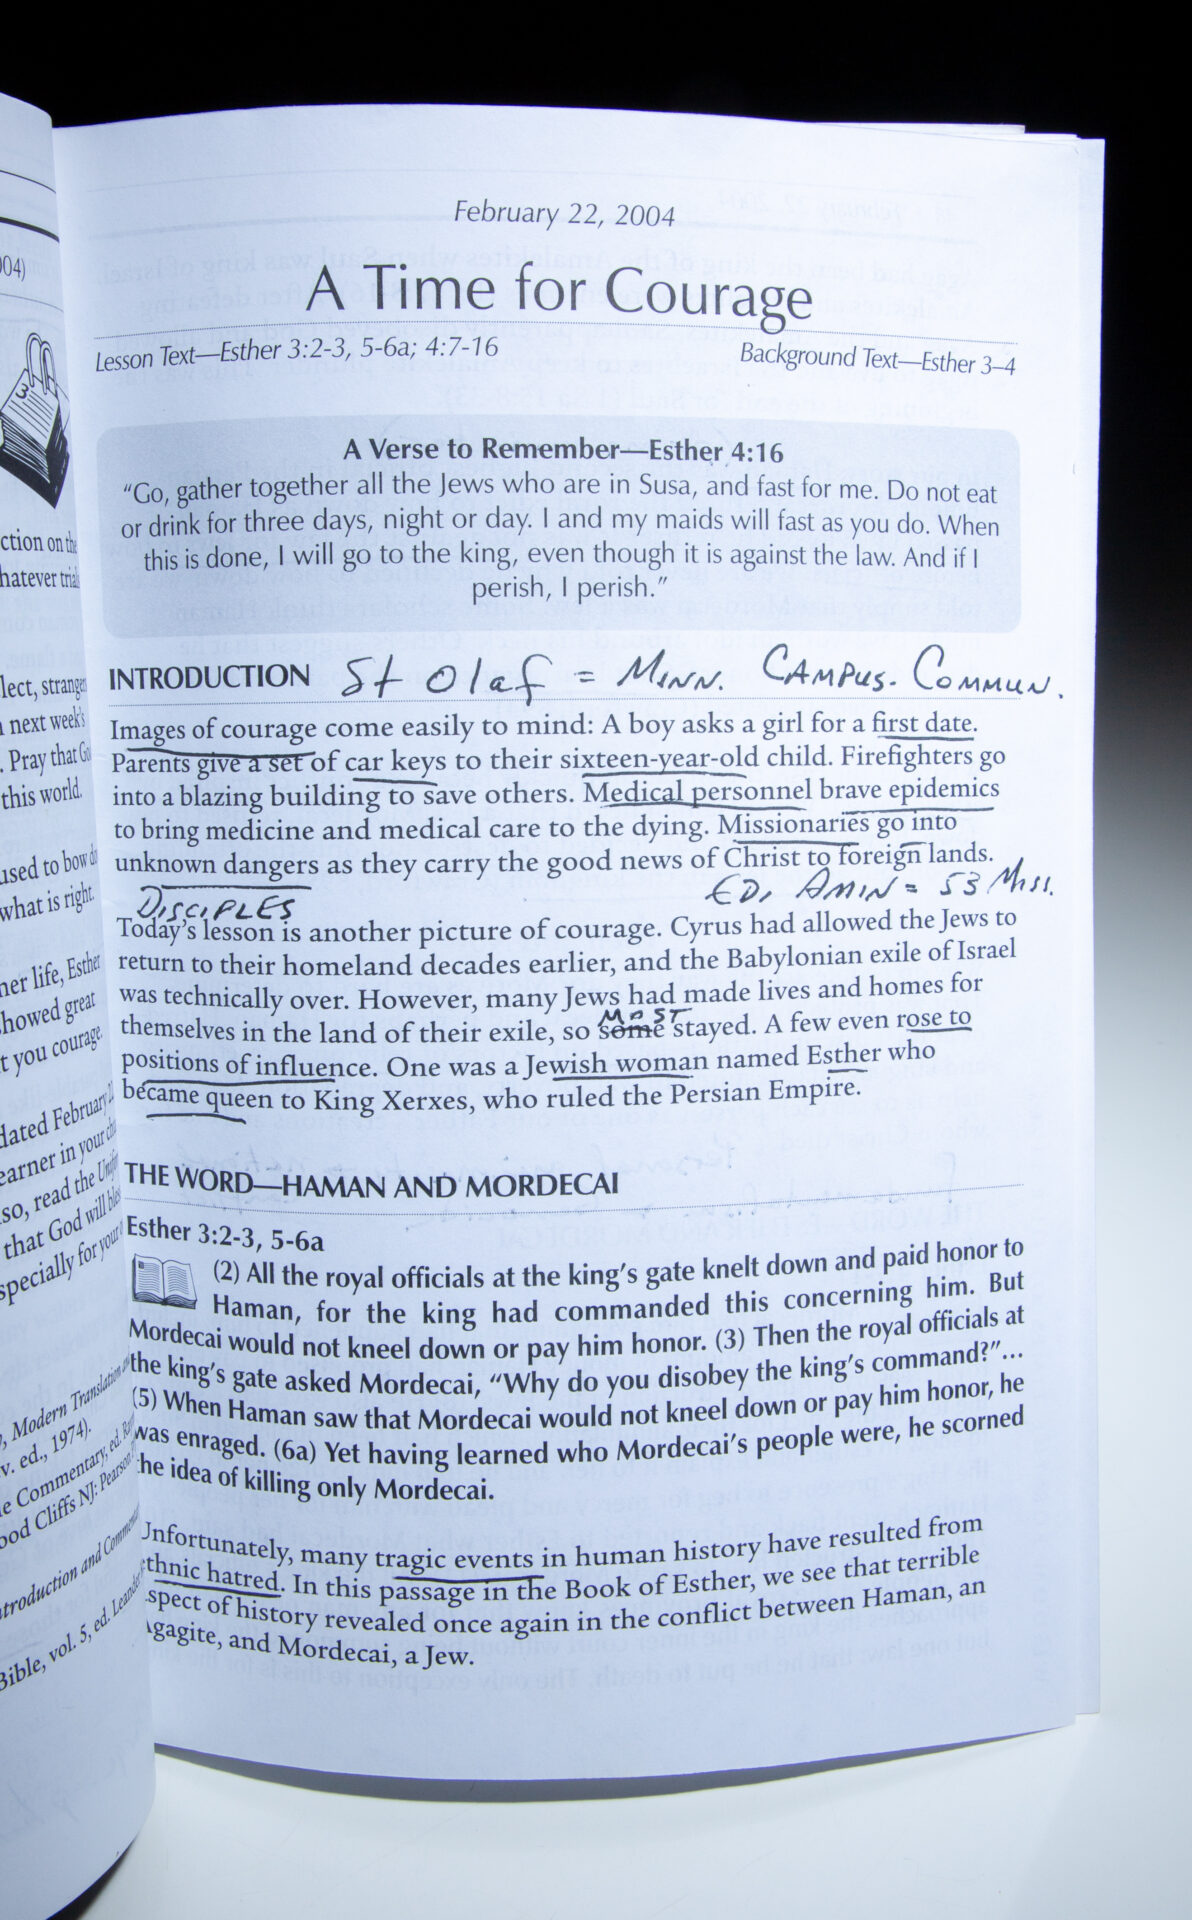 004)
3
ction on the
hatever trial
lect, stranger
next week's
. Pray that Go
this world.
used to bow do
what is right.
her life, Esther
howed great
t you courage.
dated February 2
earner in your chu
so, read the Unifor
that God will bles
specially for your
, Modern Translation and
v. ed., 1974).
e Commentary, ed. Ray
ood Cliffs NJ: Pearson
ntroduction and Commen
Bible, vol. 5, ed. Leander
February 22, 2004
A Time for Courage
Lesson Text—Esther 3:2-3, 5-6a; 4:7-16
Background Text—Esther 3–4
A Verse to Remember—Esther 4:16
“Go, gather together all the Jews who are in Susa, and fast for me. Do not eat
or drink for three days, night or day. I and my maids will fast as you do. When
this is done, I will go to the king, even though it is against the law. And if I
perish, I perish.”
INTRODUCTION St Olaf = MINN. CAMPUS. COMMUN.
Images of courage come easily to mind: A boy asks a girl for a first date.
Parents give a set of car keys to their sixteen-year-old child. Firefighters go
into a blazing building to save others. Medical personnel brave epidemics
to bring medicine and medical care to the dying. Missionaries go into
unknown dangers as they carry the good news of Christ to foreign lands.
DISCIPLES ED, AMIN = 53 Miss.
Today's lesson is another picture of courage. Cyrus had allowed the Jews to
return to their homeland decades earlier, and the Babylonian exile of Israel
was technically over. However, many Jews had made lives and homes for
MOST
themselves in the land of their exile, so some stayed. A few even rose to
positions of influence. One was a Jewish woman named Esther who
became queen to King Xerxes, who ruled the Persian Empire.
THE WORD—HAMAN AND MORDECAI
Esther 3:2-3, 5-6a
(2) All the royal officials at the king's gate knelt down and paid honor to
Haman, for the king had commanded this concerning him. But
Mordecai would not kneel down or pay him honor. (3) Then the royal officials at
the king's gate asked Mordecai, “Why do you disobey the king's command?”...
(5) When Haman saw that Mordecai would not kneel down or pay him honor, he
was enraged. (6a) Yet having learned who Mordecai's people were, he scorned
he idea of killing only Mordecai.
Unfortunately, many tragic events in human history have resulted from
thnic hatred. In this passage in the Book of Esther, we see that terrible
spect of history revealed once again in the conflict between Haman, an
Agagite, and Mordecai, a Jew.